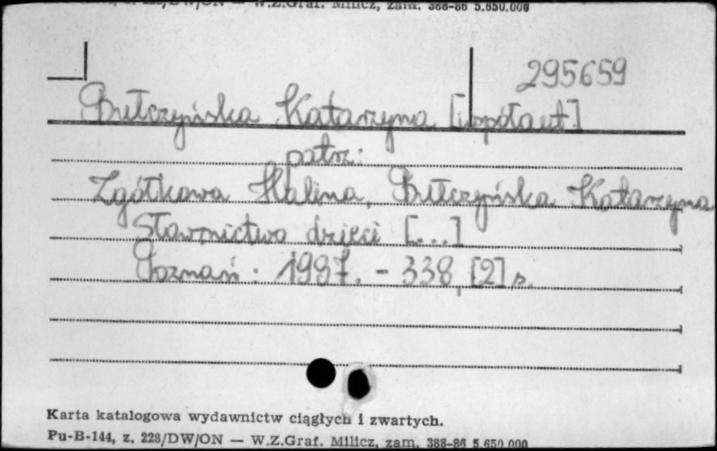 W.Z.Graf. Milicz, zam. 388-86 5.650.000
295659
Bułczyńska Katarzyna [współaut]
patrz:
Zgółkowa Halina, Bułczyńska Katarzyna
Słownictwo dzieci [...]
Poznań : 1987. - 338, [2] s.
Karta katalogowa wydawnictw ciągłych i zwartych.
Pu-B-144, z. 228/DW/ON — W.Z.Graf. Milicz, zam. 388-86 5.650.000